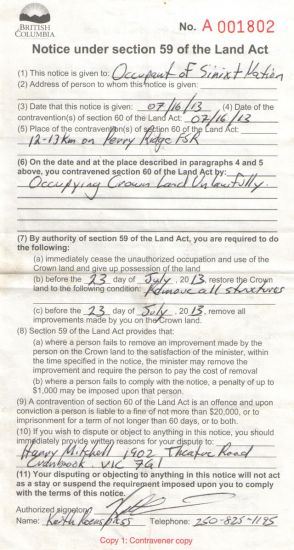 BRITISH
COLUMBIA
No. A 001802
Notice under section 59 of the Land Act
(1) This notice is given to: Occupant of Sinixt Nation
(2) Address of person to whom this notice is given:
(3) Date that this notice is given: 07/16/13 (4) Date of the
contravention(s) of section 60 of the Land Act: 07/16/13
(5) Place of the contravention(s) of section 60 of the Land Act:
12-13km on Perry Ridge FSR
(6) On the date and at the place described in paragraphs 4 and 5
above, you contravened section 60 of the Land Act by:
Occupying Crown Land Unlawfully.
(7) By authority of section 59 of the Land Act, you are required to do
the following:
(a) immediately cease the unauthorized occupation and use of the
Crown land and give up possession of the land
(b) before the 23 day of July, 2013, restore the Crown
land to the following condition: Remove all structures
(c) before the 23 day of July, 2013, remove all
improvements made by you on the Crown land.
(8) Section 59 of the Land Act provides that:
(a) where a person fails to remove an improvement made by the
person on the Crown land to the satisfaction of the minister, within
the time specified in the notice, the minister may remove the
improvement and require the person to pay the cost of removal
(b) where a person fails to comply with the notice, a penalty of up to
$1,000 may be imposed upon that person.
(9) A contravention of section 60 of the Land Act is an offence and upon
conviction a person is liable to a fine of not more than $20,000, or to
imprisonment for a term of not longer than 60 days, or to both.
(10) If you wish to dispute or object to anything in this notice, you should
immediately provide written reasons for your dispute to:
Harry Mitchell 1902 Theatre Road
Cranbrook V1C 7G1
(11) Your disputing or objecting to anything in this notice will not act
as a stay or suspend the requirement imposed upon you to comply
with the terms of this notice.
Authorized signatory:
Name: Keith Telephone: 250-825-1195
Copy 1: Contravener copy